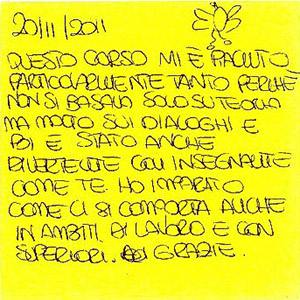 20/11/2011
QUESTO CORSO MI È PIACIUTO
PARTICOLARMENTE TANTO PERCHÉ
NON SI BASAVA SOLO SU TEORIA
MA MOLTO SUI DIALOGHI E
POI È STATO ANCHE
DIVERTENTE CON INSEGNANTE
COME TE. HO IMPARATO
COME CI SI COMPORTA ANCHE
IN AMBITI DI LAVORO E CON
SUPERIORI. GRAZIE.